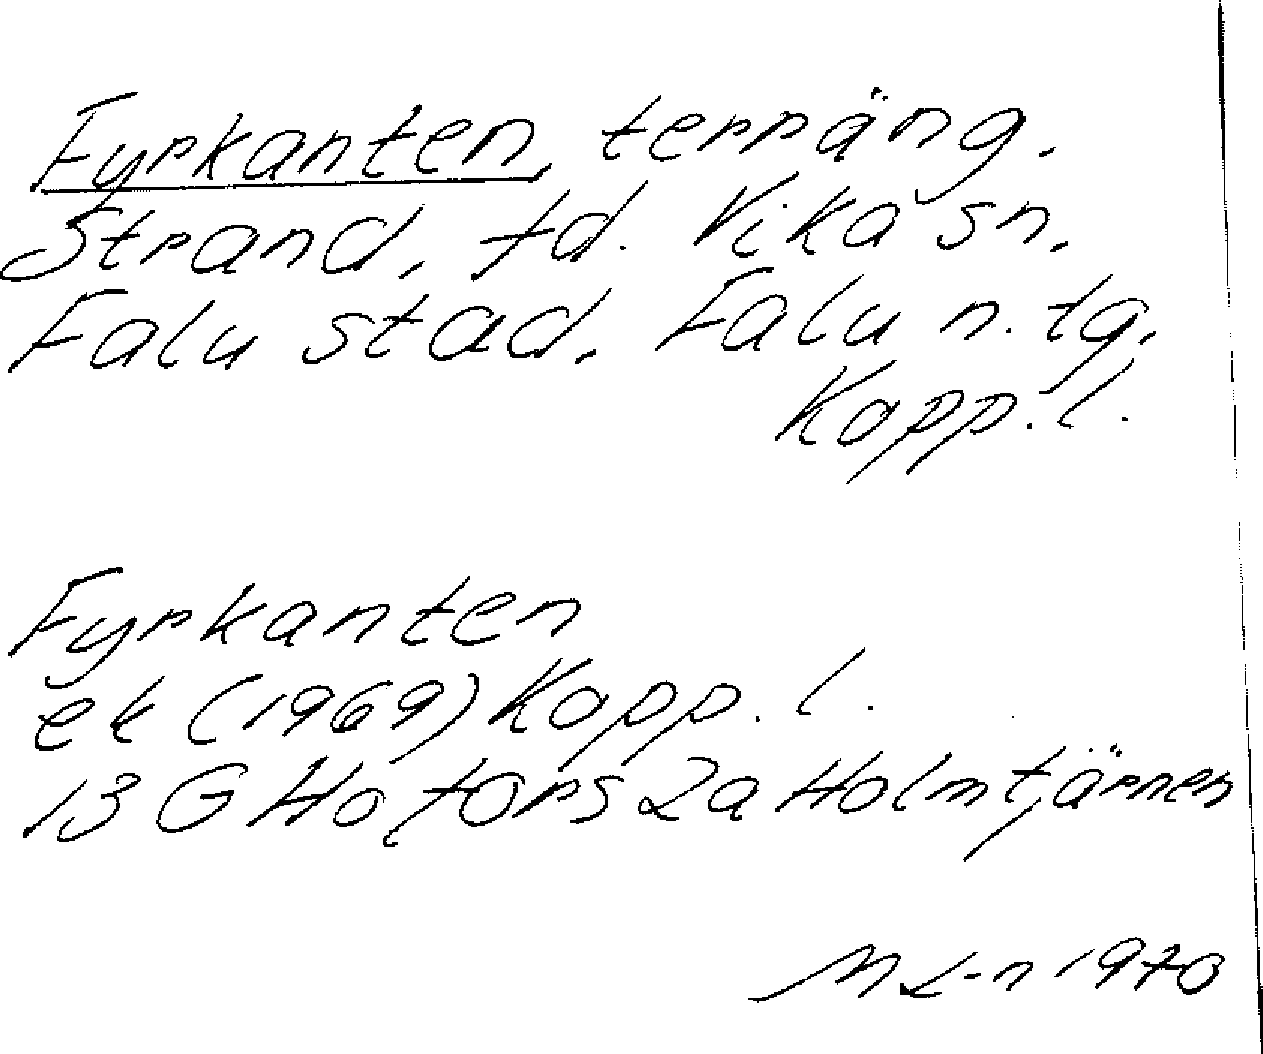 Fyrkanten, terräng.
Strand, fd. Vika sn,
Falu stad, Falu n. tg,
Kopp. l.
Fyrkanten
ek (1969) Kopp. l.
13 G Hofors 2a Holmtjärnen
M L-n 1970